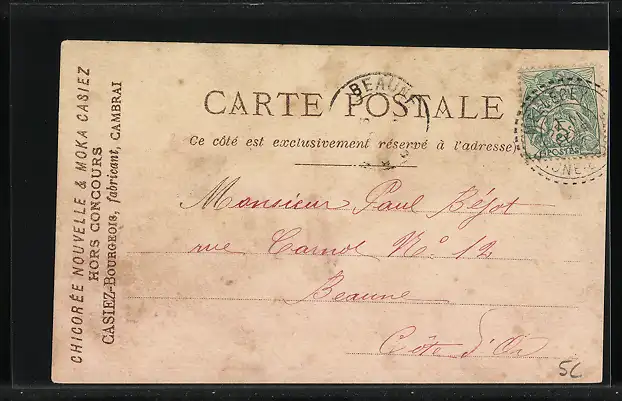 CHICORÉE NOUVELLE & MOKA CASIEZ
HORS CONCOURS
CASIEZ-BOURGEOIS, fabricant, CAMBRAI
BEAUNE
CARTE POSTALE
Ce côté est exclusivement réservé à l'adresse
POSTES
Monsieur Paul Béjot
rue Carnot No 12
Beaune
Côte d'Or
5C